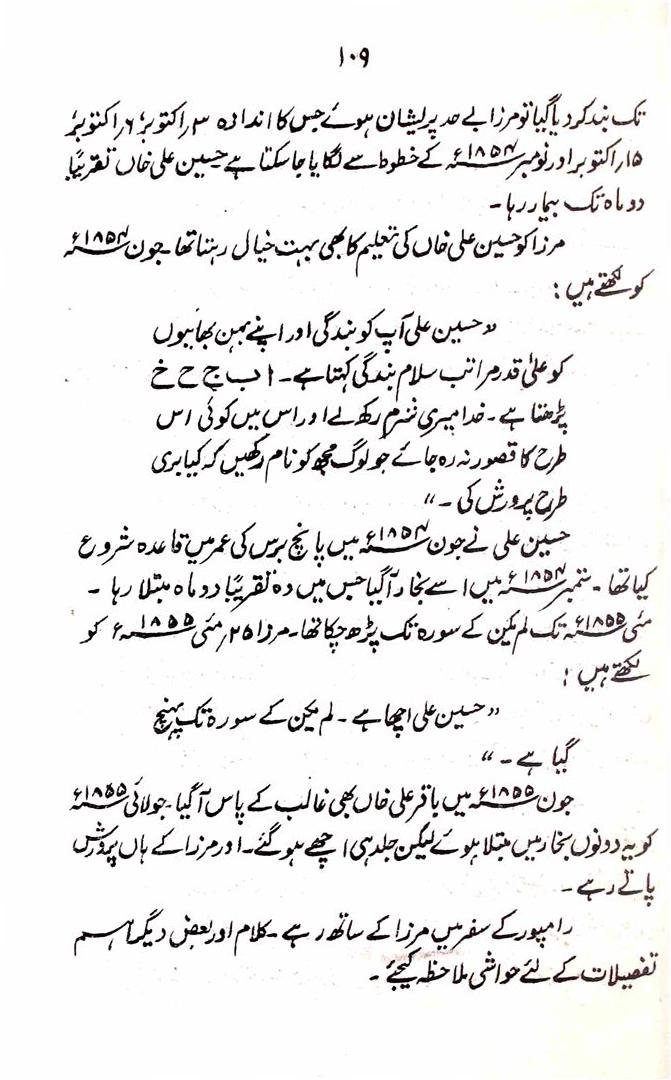 ۱۰۹
تک بند کر دیا گیا تو مرزا بے حد پریشان ہوئے جس کا اندازہ ۳؍اکتوبر ۶؍اکتوبر
۱۵؍اکتوبر اور نومبر ۱۸۵۴ء کے خطوط سے لگایا جا سکتا ہے حسین علی خاں تقریباً
دو ماہ تک بیمار رہا۔
مرزا کو حسین علی خاں کی تعلیم کا بھی بہت خیال رہتا تھا۔ جون ۱۸۵۴ء
کو لکھتے ہیں :
”حسین علی آپ کو بندگی اور اپنے بہن بھائیوں
کو علیٰ قدر مراتب سلام بندگی کہتا ہے۔ ا ب ج ح خ
پڑھتا ہے۔ خدا میری شرم رکھ لے اور اس میں کوئی اس
طرح کا قصور نہ رہ جائے جو لوگ مجھ کو نام رکھیں کہ کیا بری
طرح پرورش کی۔“
حسین علی نے جون ۱۸۵۴ء میں پانچ برس کی عمر میں قاعدہ شروع
کیا تھا۔ ستمبر ۱۸۵۴ء میں اسے بخار آگیا جس میں وہ تقریباً دو ماہ مبتلا رہا ۔
مئی ۱۸۵۵ء تک لم یکن کے سورہ تک پڑھ چکا تھا۔ مرزا ۲۵؍مئی ۱۸۵۵ء کو
لکھتے ہیں :
”حسین علی اچھا ہے۔ لم یکن کے سورہ تک پہنچ
گیا ہے۔“
جون ۱۸۵۵ء میں باقر علی خاں بھی غالب کے پاس آگیا۔ جولائی ۱۸۵۵ء
کو یہ دونوں بخار میں مبتلا ہوئے لیکن جلد ہی اچھے ہو گئے۔ اور مرزا کے ہاں پرورش
پاتے رہے۔
رامپور کے سفر میں مرزا کے ساتھ رہے۔ کلام اور بعض دیگر اہم
تفصیلات کے لئے حواشی ملاحظہ کیجئے۔